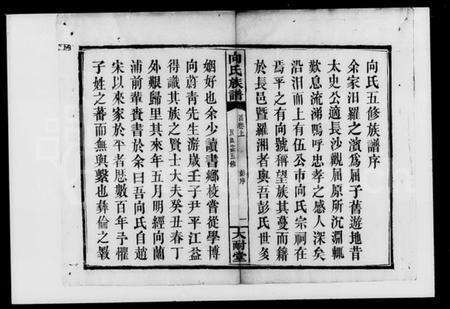 向氏五修族譜序
余家汨羅之濱為屈子舊遊地昔
太史公適長沙觀屈原所沉淵輒
歎息流涕嗚呼忠孝之感人深矣
沿汨而上有伍公市向氏宗祠在
焉平之有向號稱望族其蔓而籍
於長邑暨羅湘者與吾彭氏世多
向氏族譜
首卷上
序
一
大耐堂
姻好也余少讀書鄉校嘗從學博
向蔚青先生游歲壬子尹平江益
得識其族之賢士大夫癸丑春丁
外艱歸里其來年五月明經向蘭
浦前輩賚書於余曰吾向氏自趙
宋以來家於平者歷數百年予懼
子姓之蕃而無與繫也彝倫之斁